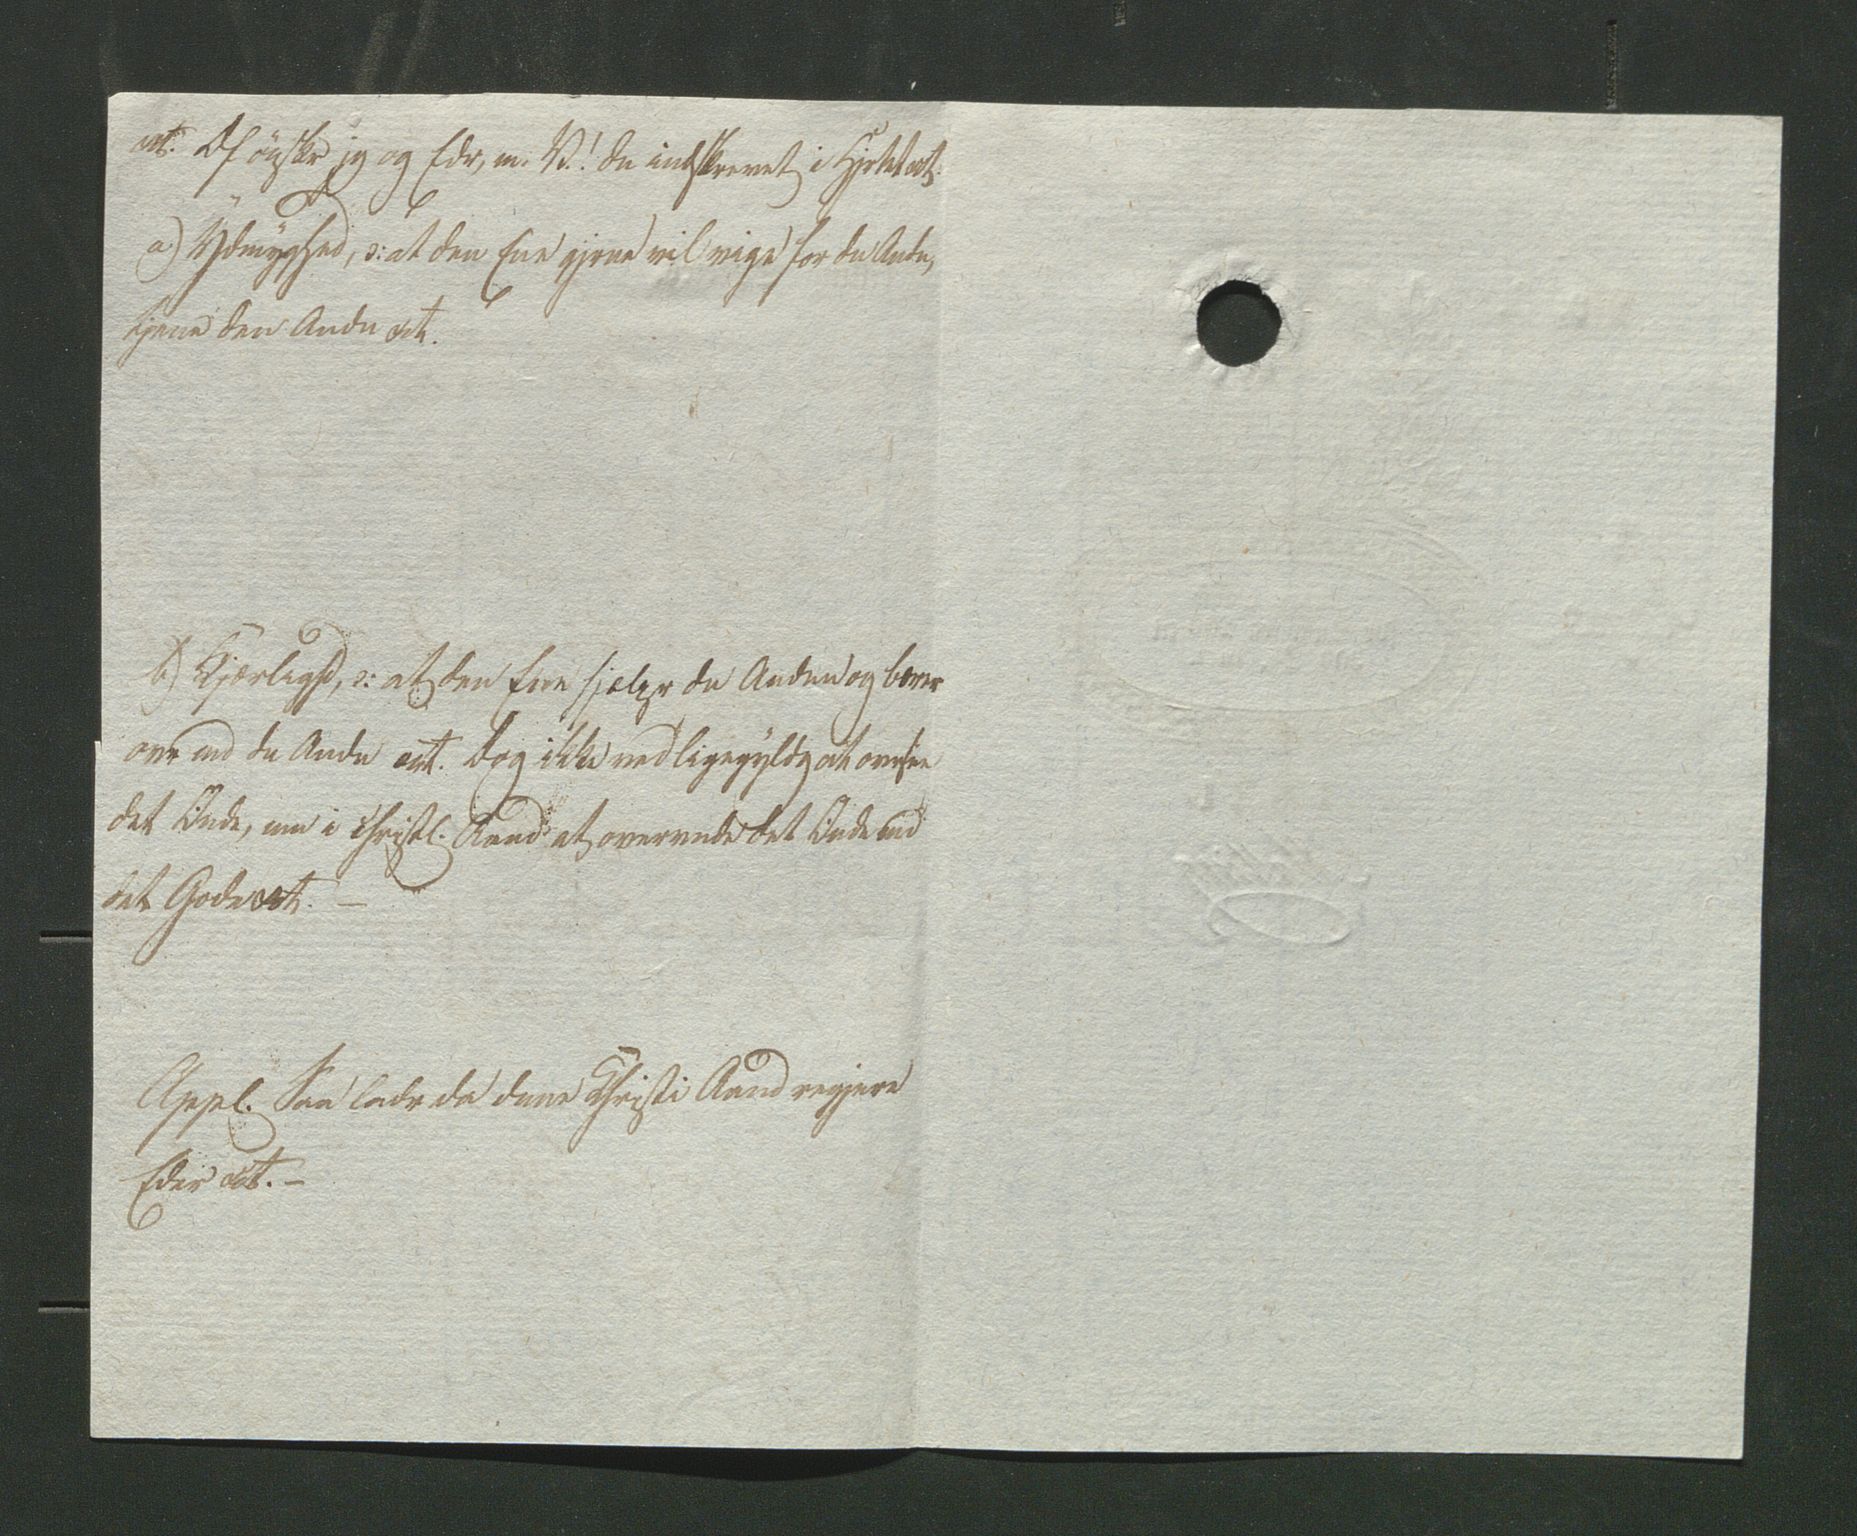 etc. Df ønsker jeg og Eder, m. V.! da indskrevet i Hjertet etc.
a) Ydmyghed, ɔ: at den Ene gjerne vil vige for den Anden,
tjene den Anden etc.
b) Kjærlighd, ɔ: at den Ene hjelper den Anden og bærer
over med den Anden etc. Dog ikke ved ligegyldig at oversee
det Onde, men i christl. Aand at overvinde det Onde med
det Gode etc. —
Appl. Saa lader da denne Christi Aand regjere
Eder etc. —